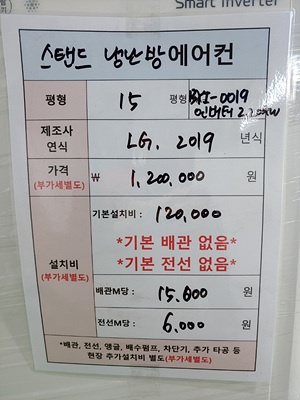 Smart Inverter
스탠드 냉난방에어컨
평형 15 평형
인버터
제조사 연식 LG. 2019 년식
가격 (부가세별도) ₩ 1,200,000 원
설치비 (부가세별도)
기본설치비 : 120,000
*기본 배관 없음*
*기본 전선 없음*
배관M당 : 15.000 원
전선M당 : 6.000 원
*배관, 전선, 앵글, 배수펌프, 차단기, 추가 타공 등
현장 추가설치비 별도(부가세별도)